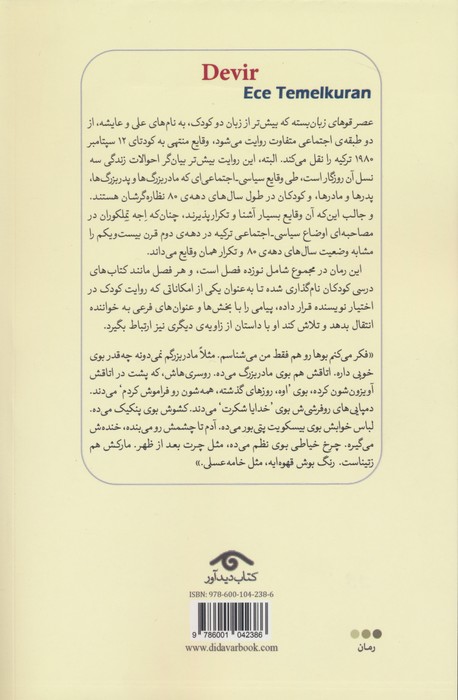 Devir
Ece Temelkuran
عصر قوهای زبان‌بسته که بیش‌تر از زبان دو کودک، به نام‌های علی و عایشه، از
دو طبقه‌ی اجتماعی متفاوت روایت می‌شود، وقایع منتهی به کودتای ۱۲ سپتامبر
۱۹۸۰ ترکیه را نقل می‌کند. البته، این روایت بیش‌تر بیان‌گر احوالات زندگی سه
نسل آن روزگار است، طی وقایع سیاسی-اجتماعی‌ای که مادربزرگ‌ها و پدربزرگ‌ها،
پدرها و مادرها، و کودکان در طول سال‌های دهه‌ی ۸۰ نظاره‌گرشان هستند.
و جالب این‌که آن وقایع بسیار آشنا و تکرارپذیرند، چنان‌که اِجه تِملکوران در
مصاحبه‌ای اوضاع سیاسی-اجتماعی ترکیه در دهه‌ی دوم قرن بیست‌ویکم را
مشابه وضعیت سال‌های دهه‌ی ۸۰ و تکرار همان وقایع می‌داند.
این رمان در مجموع شامل نوزده فصل است، و هر فصل مانند کتاب‌های
درسی کودکان نام‌گذاری شده تا به‌عنوان یکی از امکاناتی که روایت کودک در
اختیار نویسنده قرار داده، پیامی را با بخش‌ها و عنوان‌های فرعی به خواننده
انتقال بدهد و تلاش کند او با داستان از زاویه‌ی دیگری نیز ارتباط بگیرد.
«فکر می‌کنم بوها رو هم فقط من می‌شناسم. مثلاً مادربزرگم نمی‌دونه چه‌قدر بوی
خوبی داره، اتاقش هم بوی مادربزرگ می‌ده. روسری‌هاش، که پشت در اتاقش
آویزون‌شون کرده، بوی 'اوه، روزهای گذشته، همه‌شون رو فراموش کردم' می‌دند.
دمپایی‌های روفرشی‌ش بوی 'خدایا شکرت' می‌دند. کشوش بوی پنکیک می‌ده.
لباس خوابش بوی بیسکویت پتی‌بور می‌ده. آدم تا چشمش رو می‌بنده، خنده‌ش
می‌گیره. چرخ خیاطی بوی نظم می‌ده، مثل چرت بعد از ظهر. مارکش هم
زتیناست. رنگ بوش قهوه‌ایه، مثل خامه‌عسلی.»
کتاب دیدآور
ISBN: 978-600-104-238-6
9 786001 042386
www.didavarbook.com
رمان